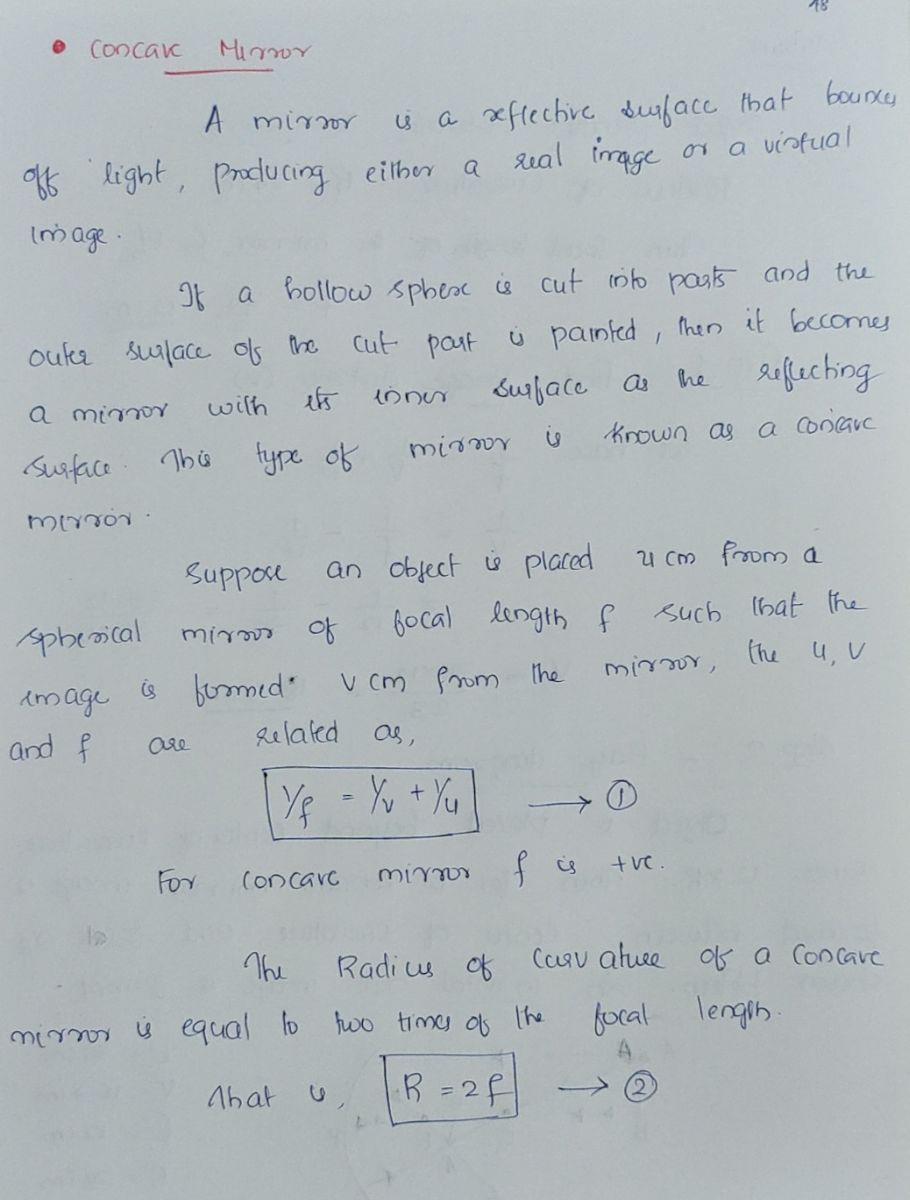 18
• Concave Mirror
A mirror is a reflective surface that bounces
off light, producing either a real image or a virtual
image.
If a hollow sphere is cut into parts and the
outer surface of the cut part is painted, then it becomes
a mirror with its inner surface as the reflecting
surface. This type of mirror is known as a concave
mirror.
Suppose an object is placed u cm from a
spherical mirror of focal length f such that the
image is formed v cm from the mirror, the u, v
and f are related as,
1/f = 1/v + 1/u → ①
For concave mirror f is +ve.
The Radius of Curvature of a Concave
mirror is equal to two times of the focal length.
That is, R = 2f → ②